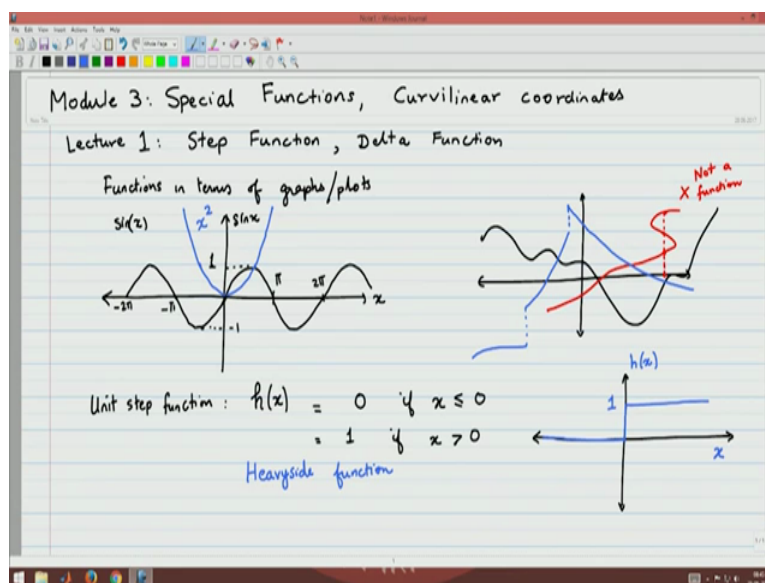 Note1 - Windows Journal
File Edit View Insert Actions Tools Help
Whole Page
B I
Module 3: Special Functions, Curvilinear coordinates
Lecture 1: Step Function, Delta Function
Functions in terms of graphs/plots
Sin(x) x² Sinx
1
-2π -π π 2π x
-1
Not a
X function
Unit step function: h(x) = 0 if x ≤ 0
= 1 if x > 0
Heavyside function
h(x)
1
x